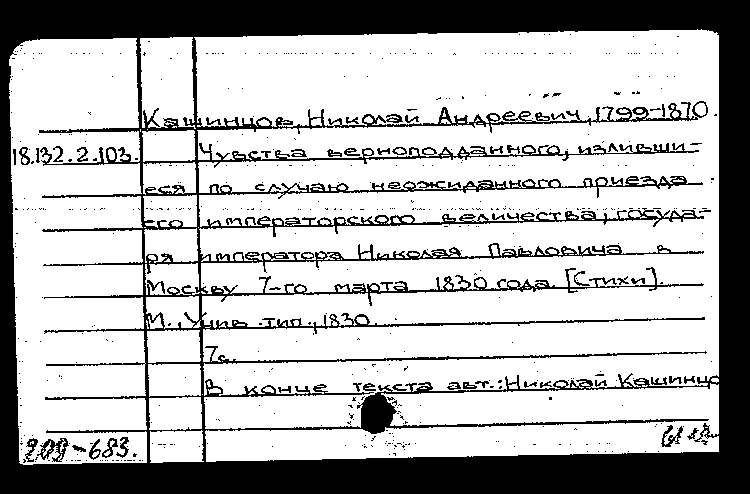 Кашинцов, Николай Андреевич, 1799-1870.
18.132.2.103. Чувства верноподданного, изливши-
еся по случаю неожиданного приезда
его императорского величества, госуда-
ря императора Николая Павловича в
Москву 7-го марта 1830 года. [Стихи].
М., Унив. тип., 1830.
7с.
В конце текста авт.: Николай Кашинцо
209-683.